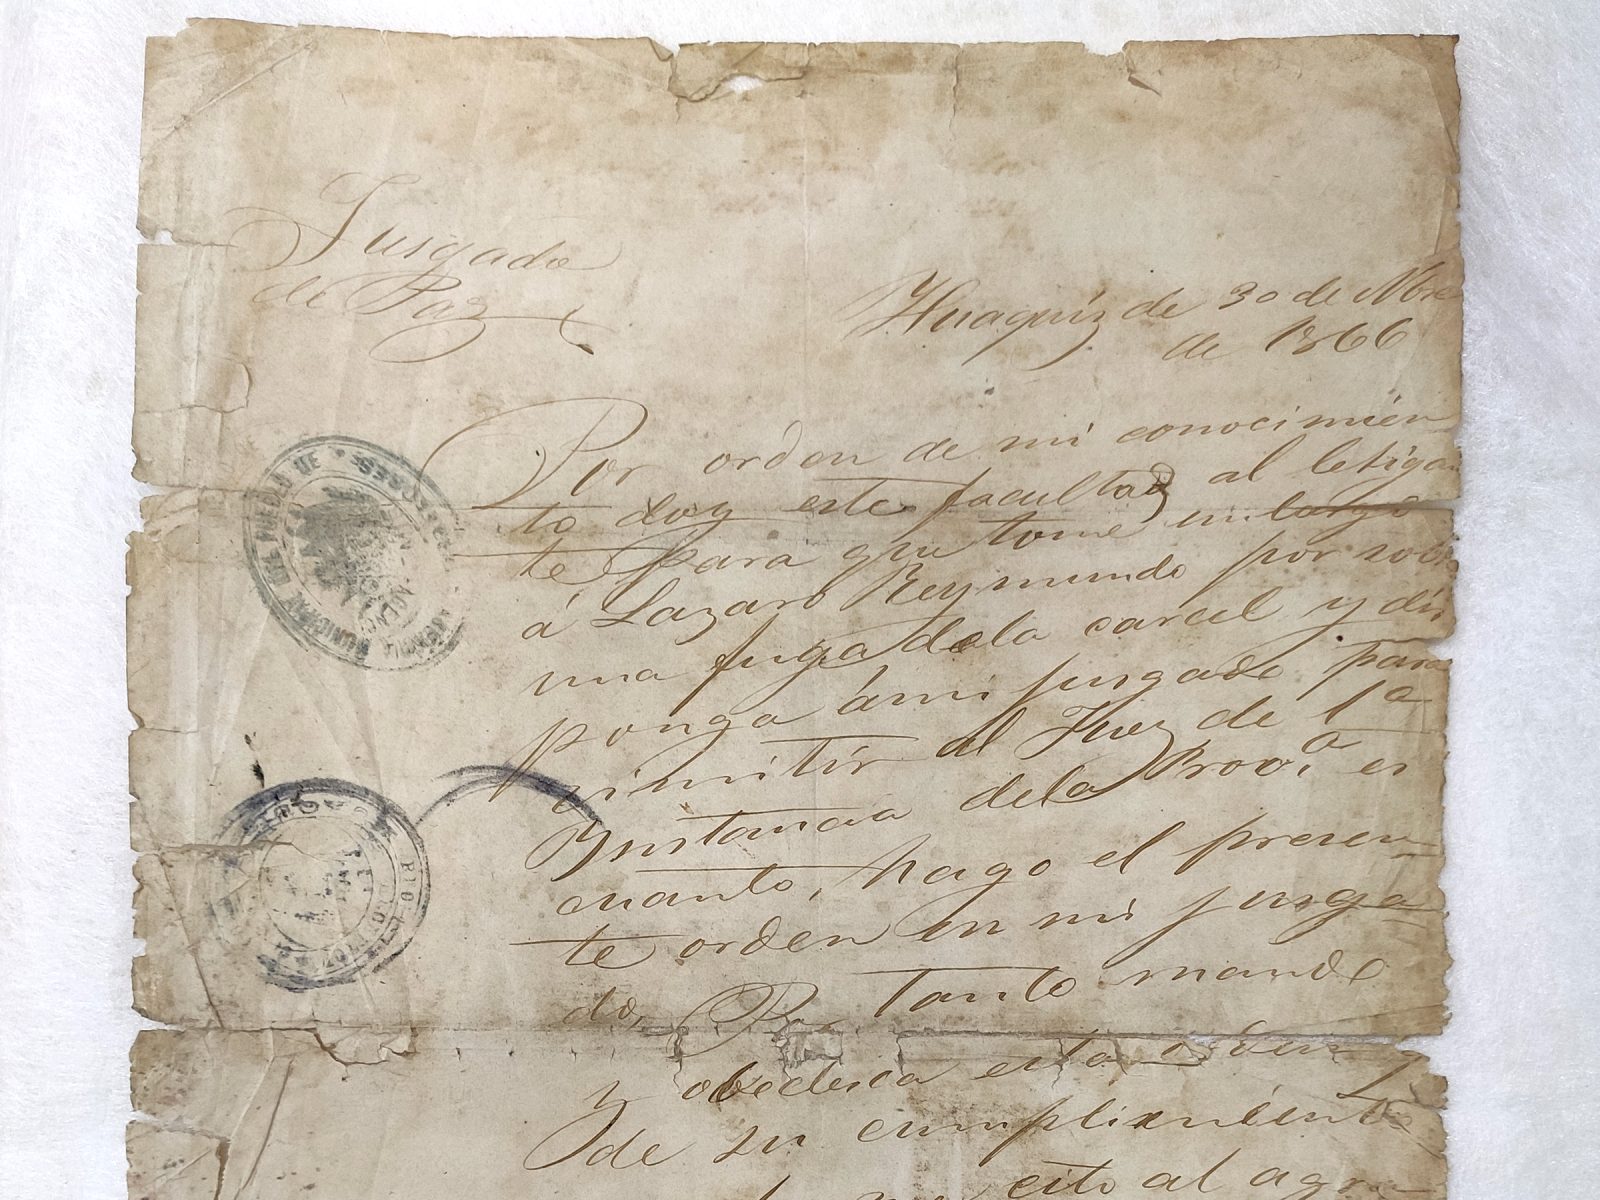 Jusgado
de Paz
Huaquiz de 30 de Nbre
de 1866
Por orden de mi conocimien
to doy este facultad al letigan
te para que tome
á Lazaro Reymundo por
una fuga dela carcel y dis
ponga ámi jusgado para
rimitir al Juez de 1a
Instancia dela Prov.a es
cuanto, hago el presen
te orden en mi jusga
do, Por tanto mando
y obedesca esta orden
de su cumplimiento
cito al
MUNICIPAL DEL PUEBLO DE